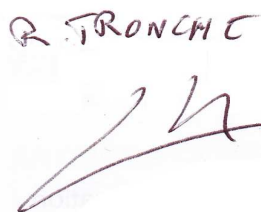 R. TRONCHE